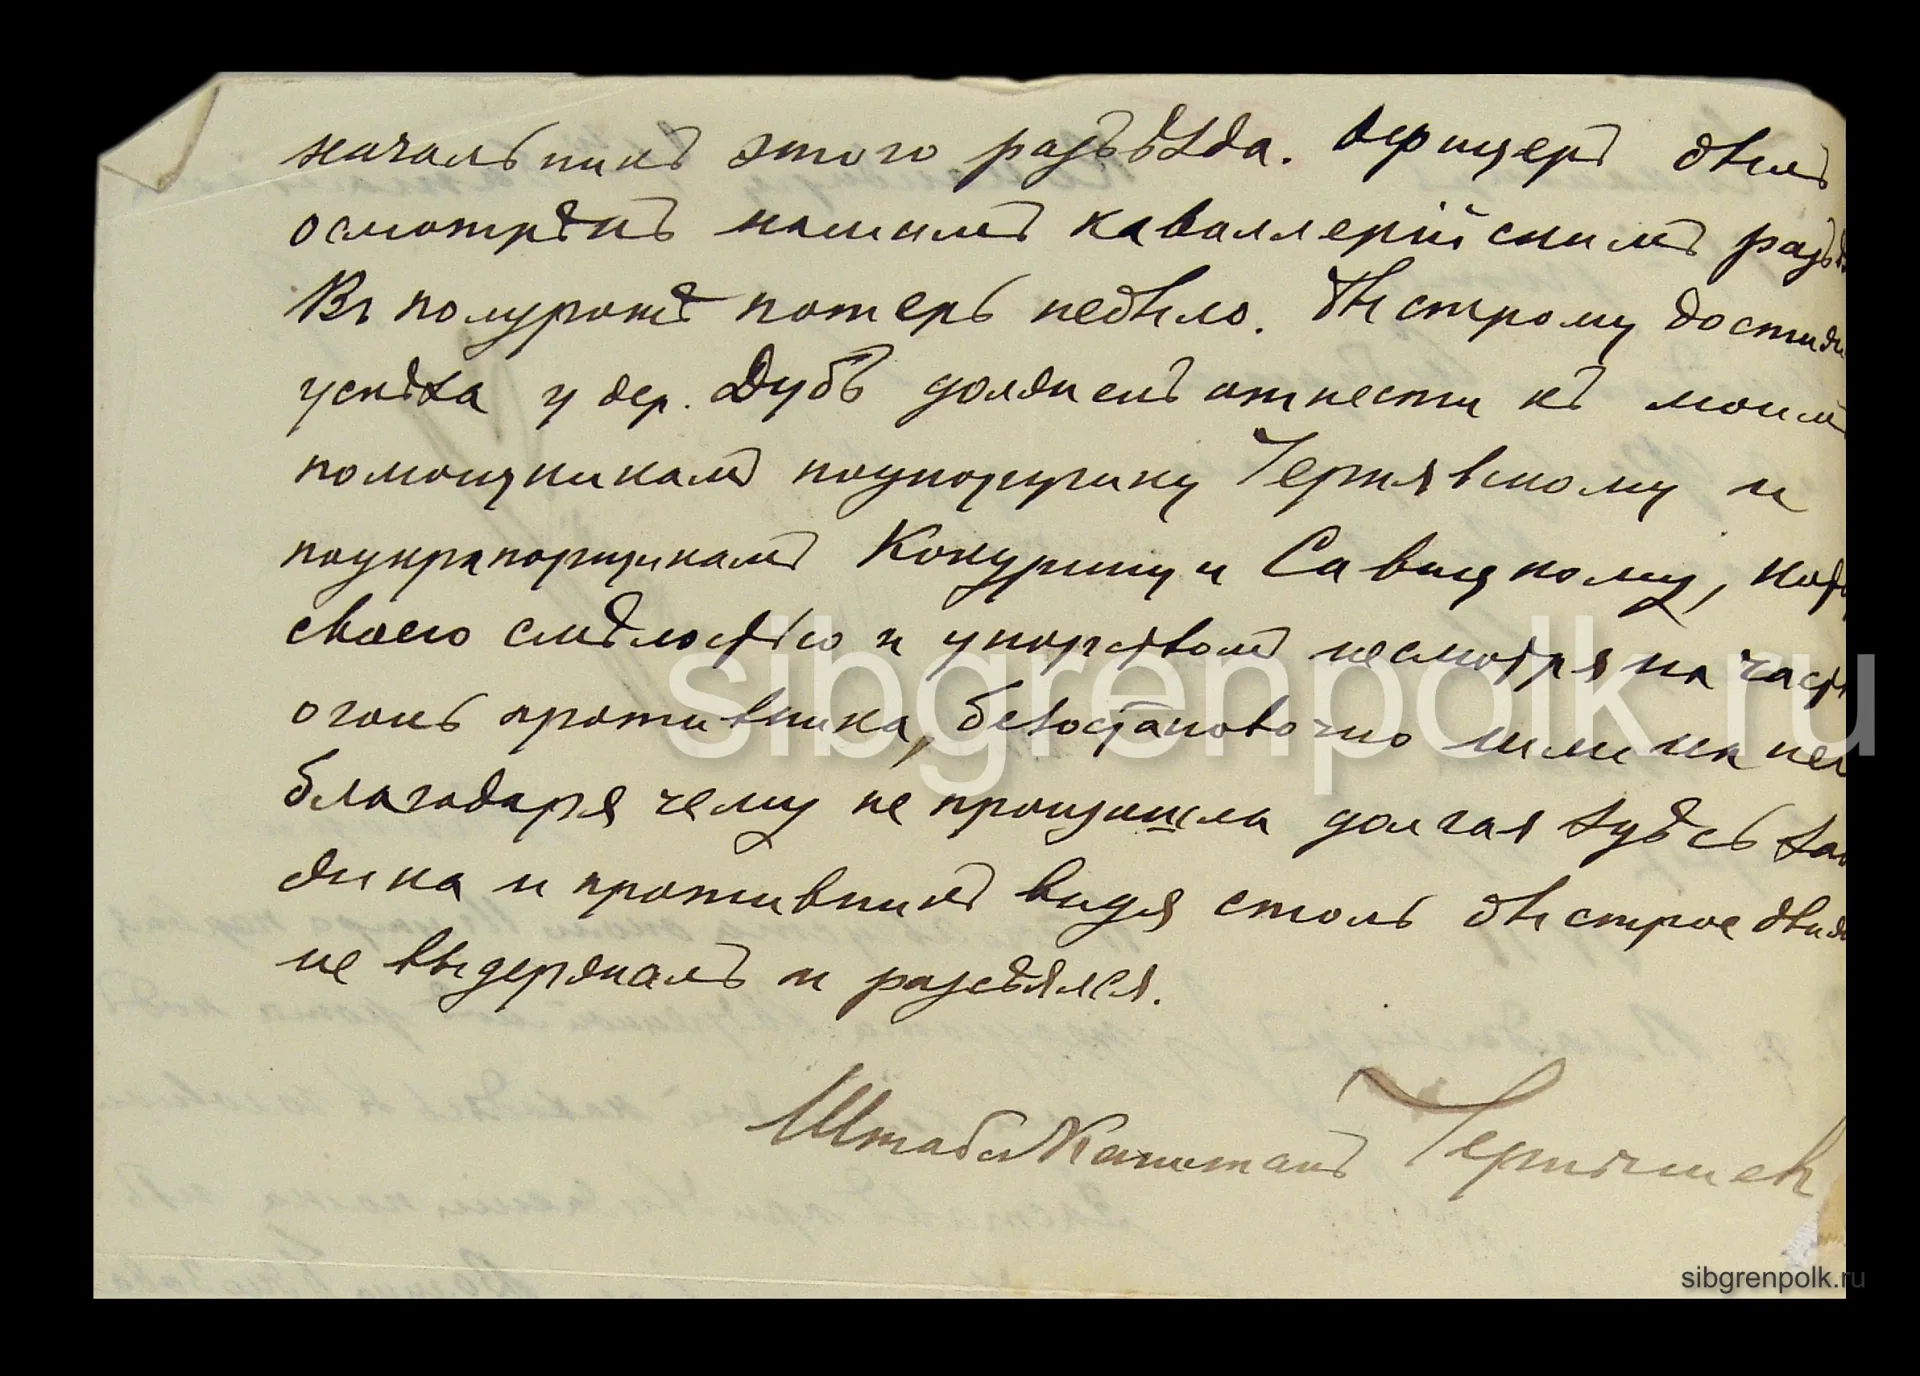 начальникъ этого разъѣзда. Офицеръ былъ
осмотрѣнъ нашимъ каваллерійскимъ разъѣ
Въ полуротѣ потерь небыло. Быстрому достиже
успѣха у дер. Дубъ долженъ отнести къ моимъ
помощникамъ подпоручику Чернявскому и
подпрапорщикамъ Кокурину и Савицкому, кот
своею смѣлостью и упорствомъ несмотря на част
огонь противника, безостановочно шли на не
благодаря чему не произошла долгая здѣсь
и противникъ видя столь быстрое движ
не выдержалъ и разсѣялся.
Штабсъ Капитанъ Чернышев
sibgrenpolk.ru
sibgrenpolk.ru